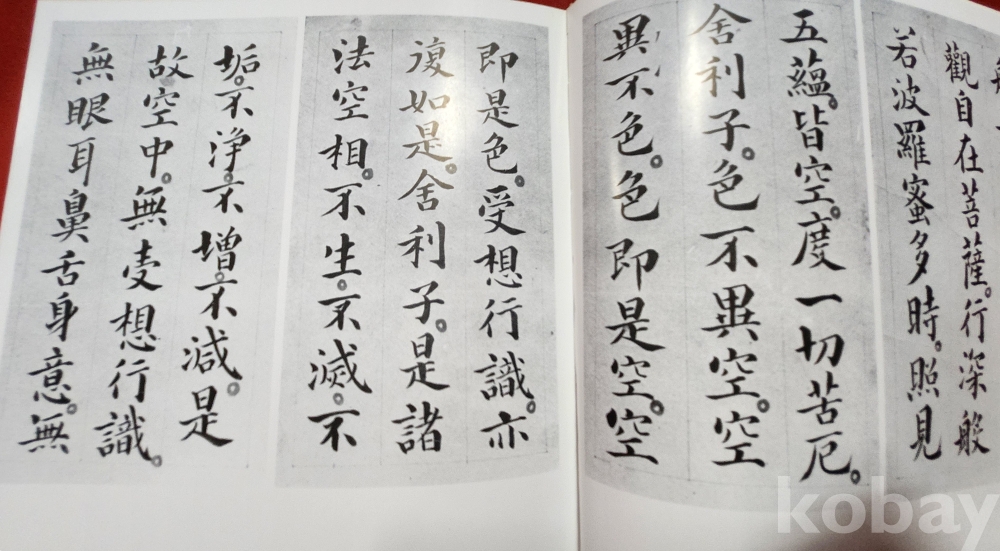 觀自在菩薩。行深般
若波羅蜜多時。照見
五蘊皆空。度一切苦厄。
舍利子。色不異空。空
異不色。色即是空。空
即是色。受想行識。亦
復如是。舍利子。是諸
法空相。不生。不滅。不
垢。不淨。不增。不減。是
故空中。無受想行識。
無眼耳鼻舌身意。無
kobay